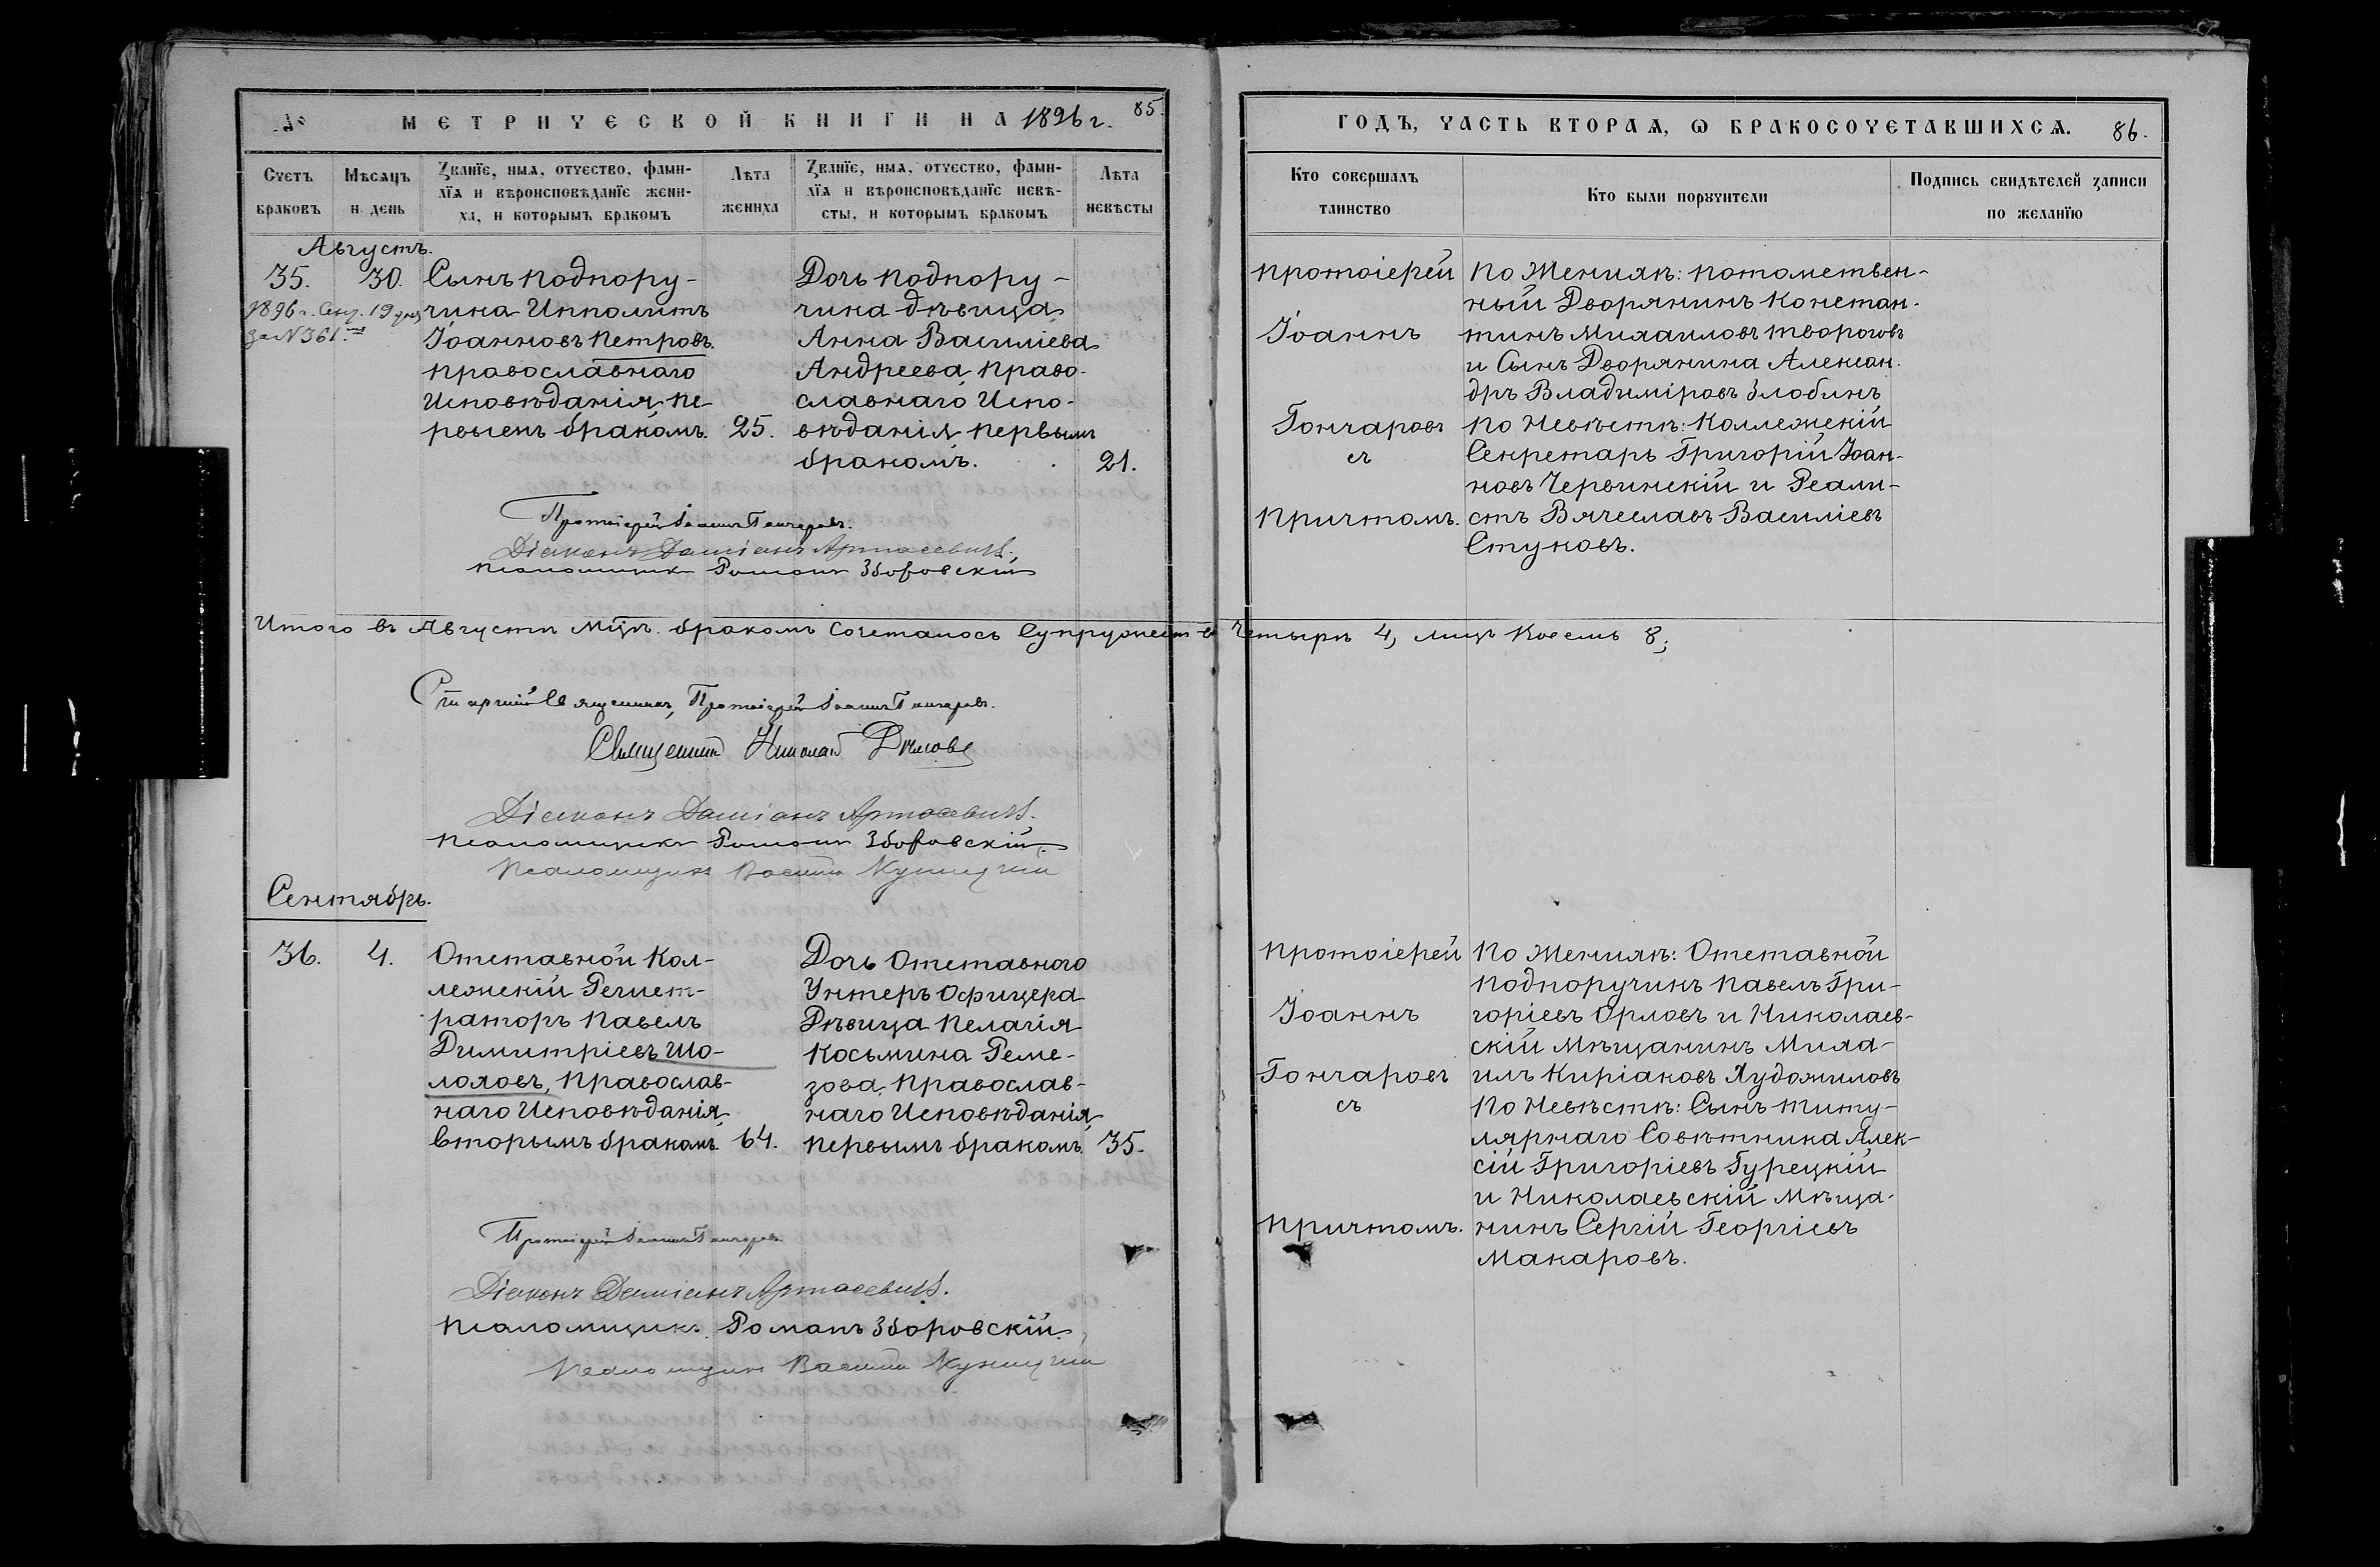 МЕТРИЧЕСКОЙ КНИГИ НА 1896 г. 85.
Счетъ браковъ
Мѣсяцъ и день
Званїе, имя, отчество, фами-
лїя и вѣроисповѣданїе жени-
ха, и которымъ бракомъ
Лѣта жениха
Званїе, имя, отчество, фами-
лїя и вѣроисповѣданїе невѣ-
сты, и которымъ бракомъ
Лѣта невѣсты
Августъ.
35. 30.
за N 361.
Сынъ Подпору-
чика Ипполитъ
Іоанновъ Петровъ.
Православнаго
Исповѣданія, пе
рвымъ бракомъ. 25.
Дочь Подпору-
чика дѣвица
Анна Василіева
Андреева, Право-
славнаго Испо-
вѣданія первымъ
бракомъ. 21.
Протоіерей Іоаннъ Гончаровъ.
Діаконъ Даміанъ Артасевичъ.
Псаломщикъ Романъ Зборовскій
Итого въ Августѣ мцѣ. бракомъ сочеталось Супружеств Четырѣ 4, лицъ восемь 8;
Старшій Священникъ, Протоіерей Іоаннъ Гончаровъ.
Священник Николай
Діаконъ Даміанъ Артасевичъ.
Псаломщикъ Романъ Зборовскій.
Псаломщик Василій
Сентябрь.
36. 4.
Отставной Кол-
лежскій Регист-
раторъ Павелъ
Димитріевъ Шо-
лоховъ, Православ-
наго Исповѣданія,
вторымъ бракомъ. 64.
Дочь Отставного
Унтеръ Офицера
Дѣвица Пелагія
Косьмина Реме-
зова, Православ-
наго Исповѣданія,
первымъ бракомъ. 35.
Протоіерей Іоаннъ Гончаровъ.
Діаконъ Даміанъ Артасевичъ.
Псаломщикъ Романъ Зборовскій.
Псаломщик Василій
ГОДЪ, ЧАСТЬ ВТОРАЯ, Ѡ БРАКОСОЧЕТАВШИХСЯ. 86.
Кто совершалъ
таинство
Кто были порꙋчители
Подпись свидѣтелей записи
по желанїю
Протоіерей
Іоаннъ
Гончаровъ
съ
Причтомъ.
По Женихѣ: Потомствен-
ный Дворянинъ Констан-
тинъ Михаиловъ Твороговъ
и Сынъ Дворянина Алексан-
дръ Владиміровъ Злобинъ
По Невѣстѣ: Коллежскій
Секретарь Григорій Іоан-
новъ Червинскій и Реали-
стъ Вячеславъ Василіевъ
Стуковъ.
Протоіерей
Іоаннъ
Гончаровъ
съ
Причтомъ.
По Женихѣ: Отставной
Подпоручикъ Павелъ Гри-
горіевъ Орловъ и Николаев-
скій Мѣщанинъ Миха-
илъ Киріаковъ Художиловъ
По Невѣстѣ: Сынъ Титу-
лярнаго Совѣтника Алек-
сій Григоріевъ Гурецкій
и Николаевскій Мѣща-
нинъ Сергій Георгіевъ
Макаровъ.